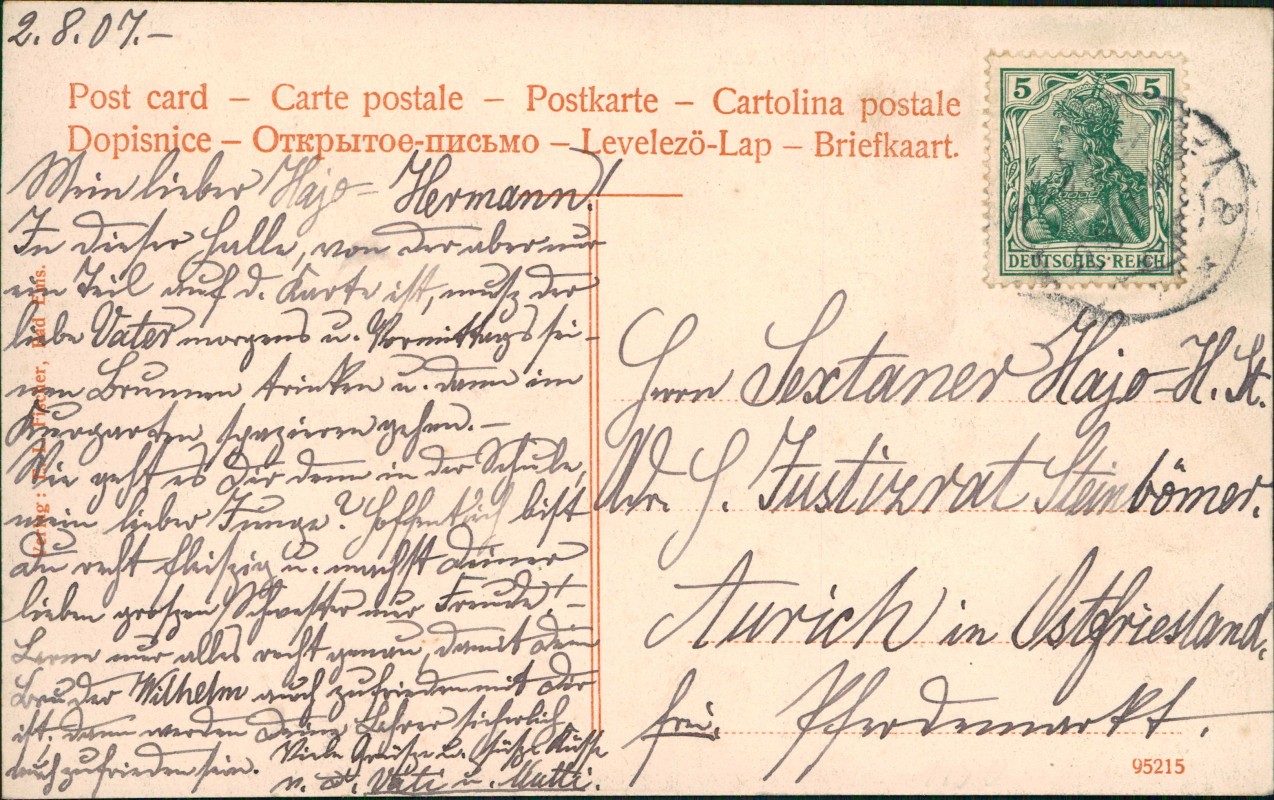 2.8.07.-
Post card – Carte postale – Postkarte – Cartolina postale
Dopisnice – Открытое-письмо – Levelező-Lap – Briefkaart.
5 5
DEUTSCHES REICH
Mein lieber Hajo-Hermann!
In dieser Halle, von der aber nur
ein Teil auf d. Karte ist, musz der
liebe Vater morgens u. Vormittags sei-
nen Brunnen trinken u. dann im
Kurgarten spazieren gehen.-
Wie geht es Dir denn in der Schule,
mein lieber Junge? Hoffentlich bist
Du recht fleiszig u. machst Deiner
lieben groszen Schwester nur Freude!-
Lerne nur alles recht genau, damit Dein
Bruder Wilhelm auch zufrieden mit Dir
ist. dann werden Deine Lehrer sicherlich
auch zufrieden sein. Viele Grüsze u. süsze Küsse
v. D. Vati u. Mutti.
Herrn Sextaner Hajo-H. St.
Adr. H. Justizrat Steinbömer.
Aurich in Ostfriesland,
frei. Pferdemarkt.
Verlag: Fischer, Bad Ems.
95215